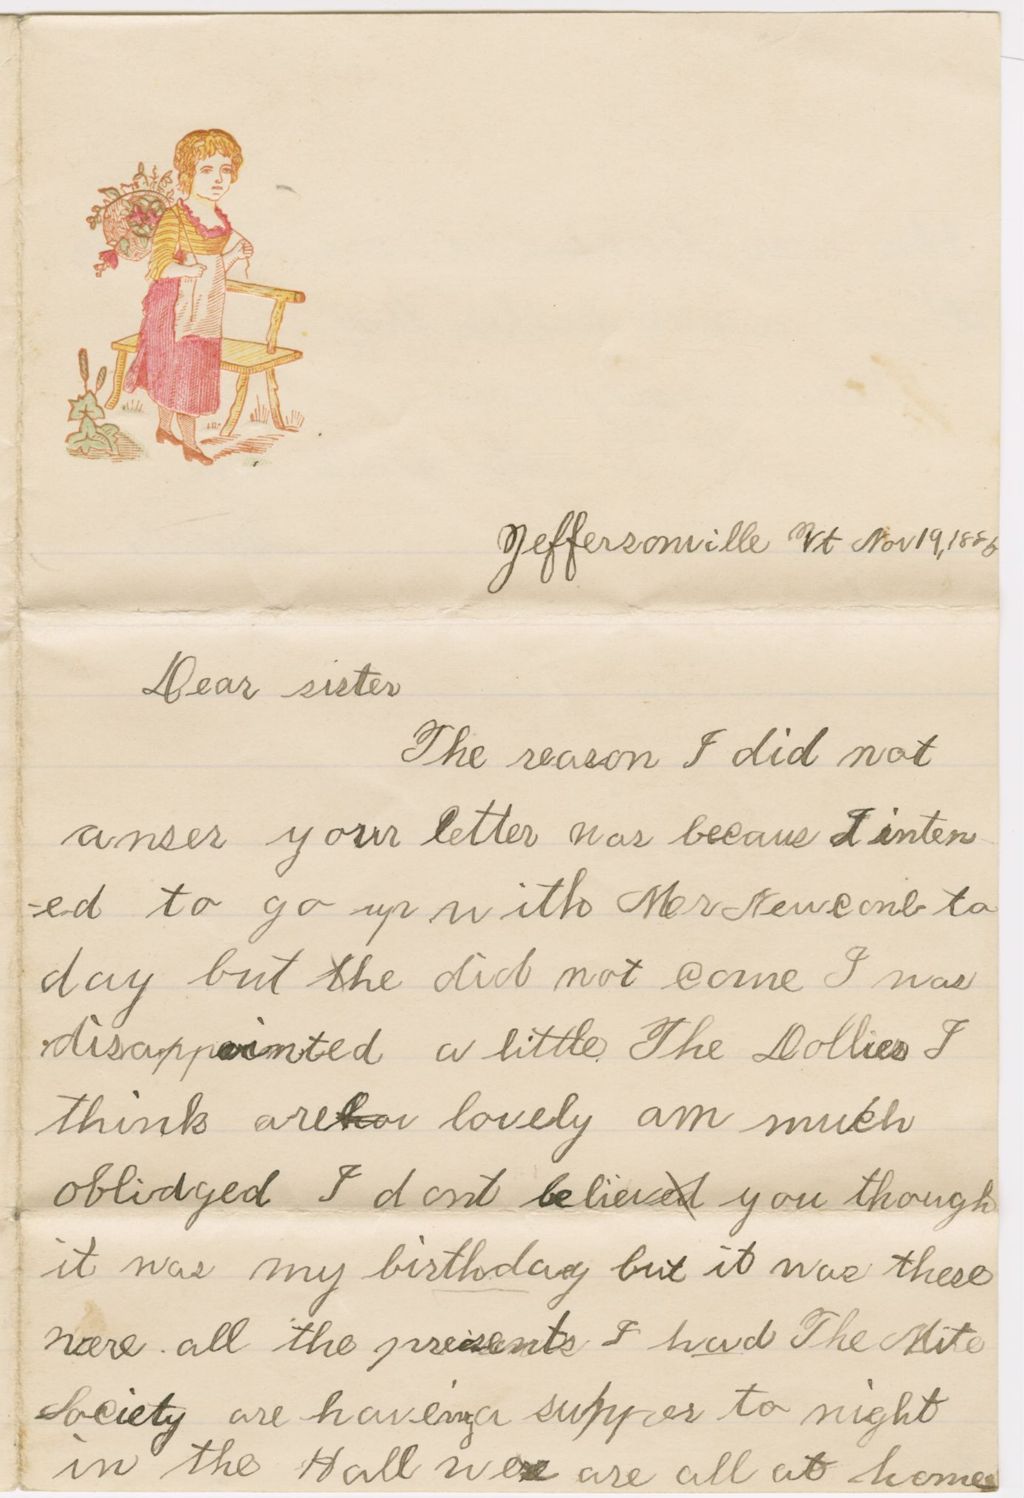 Jeffersonville Vt Nov 19, 1886
Dear sister
The reason I did not
anser your letter was becaus I inten
-ed to go up with Mr Newcomb to
day but he did not come I was
disappointed a little. The Dollies I
think are lovely am much
oblidged I dont believe you though
it was my birthday but it was these
were all the presents I had The Mite
Society are having a supper to night
in the Hall we are all at home